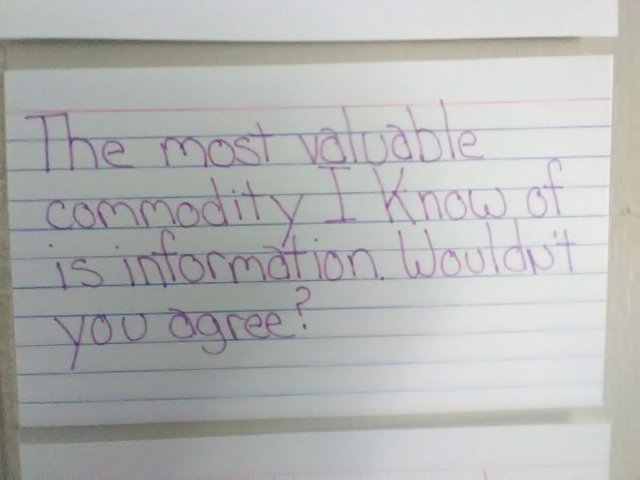 The most valuable
commodity I Know of
is information. Wouldn't
you agree?